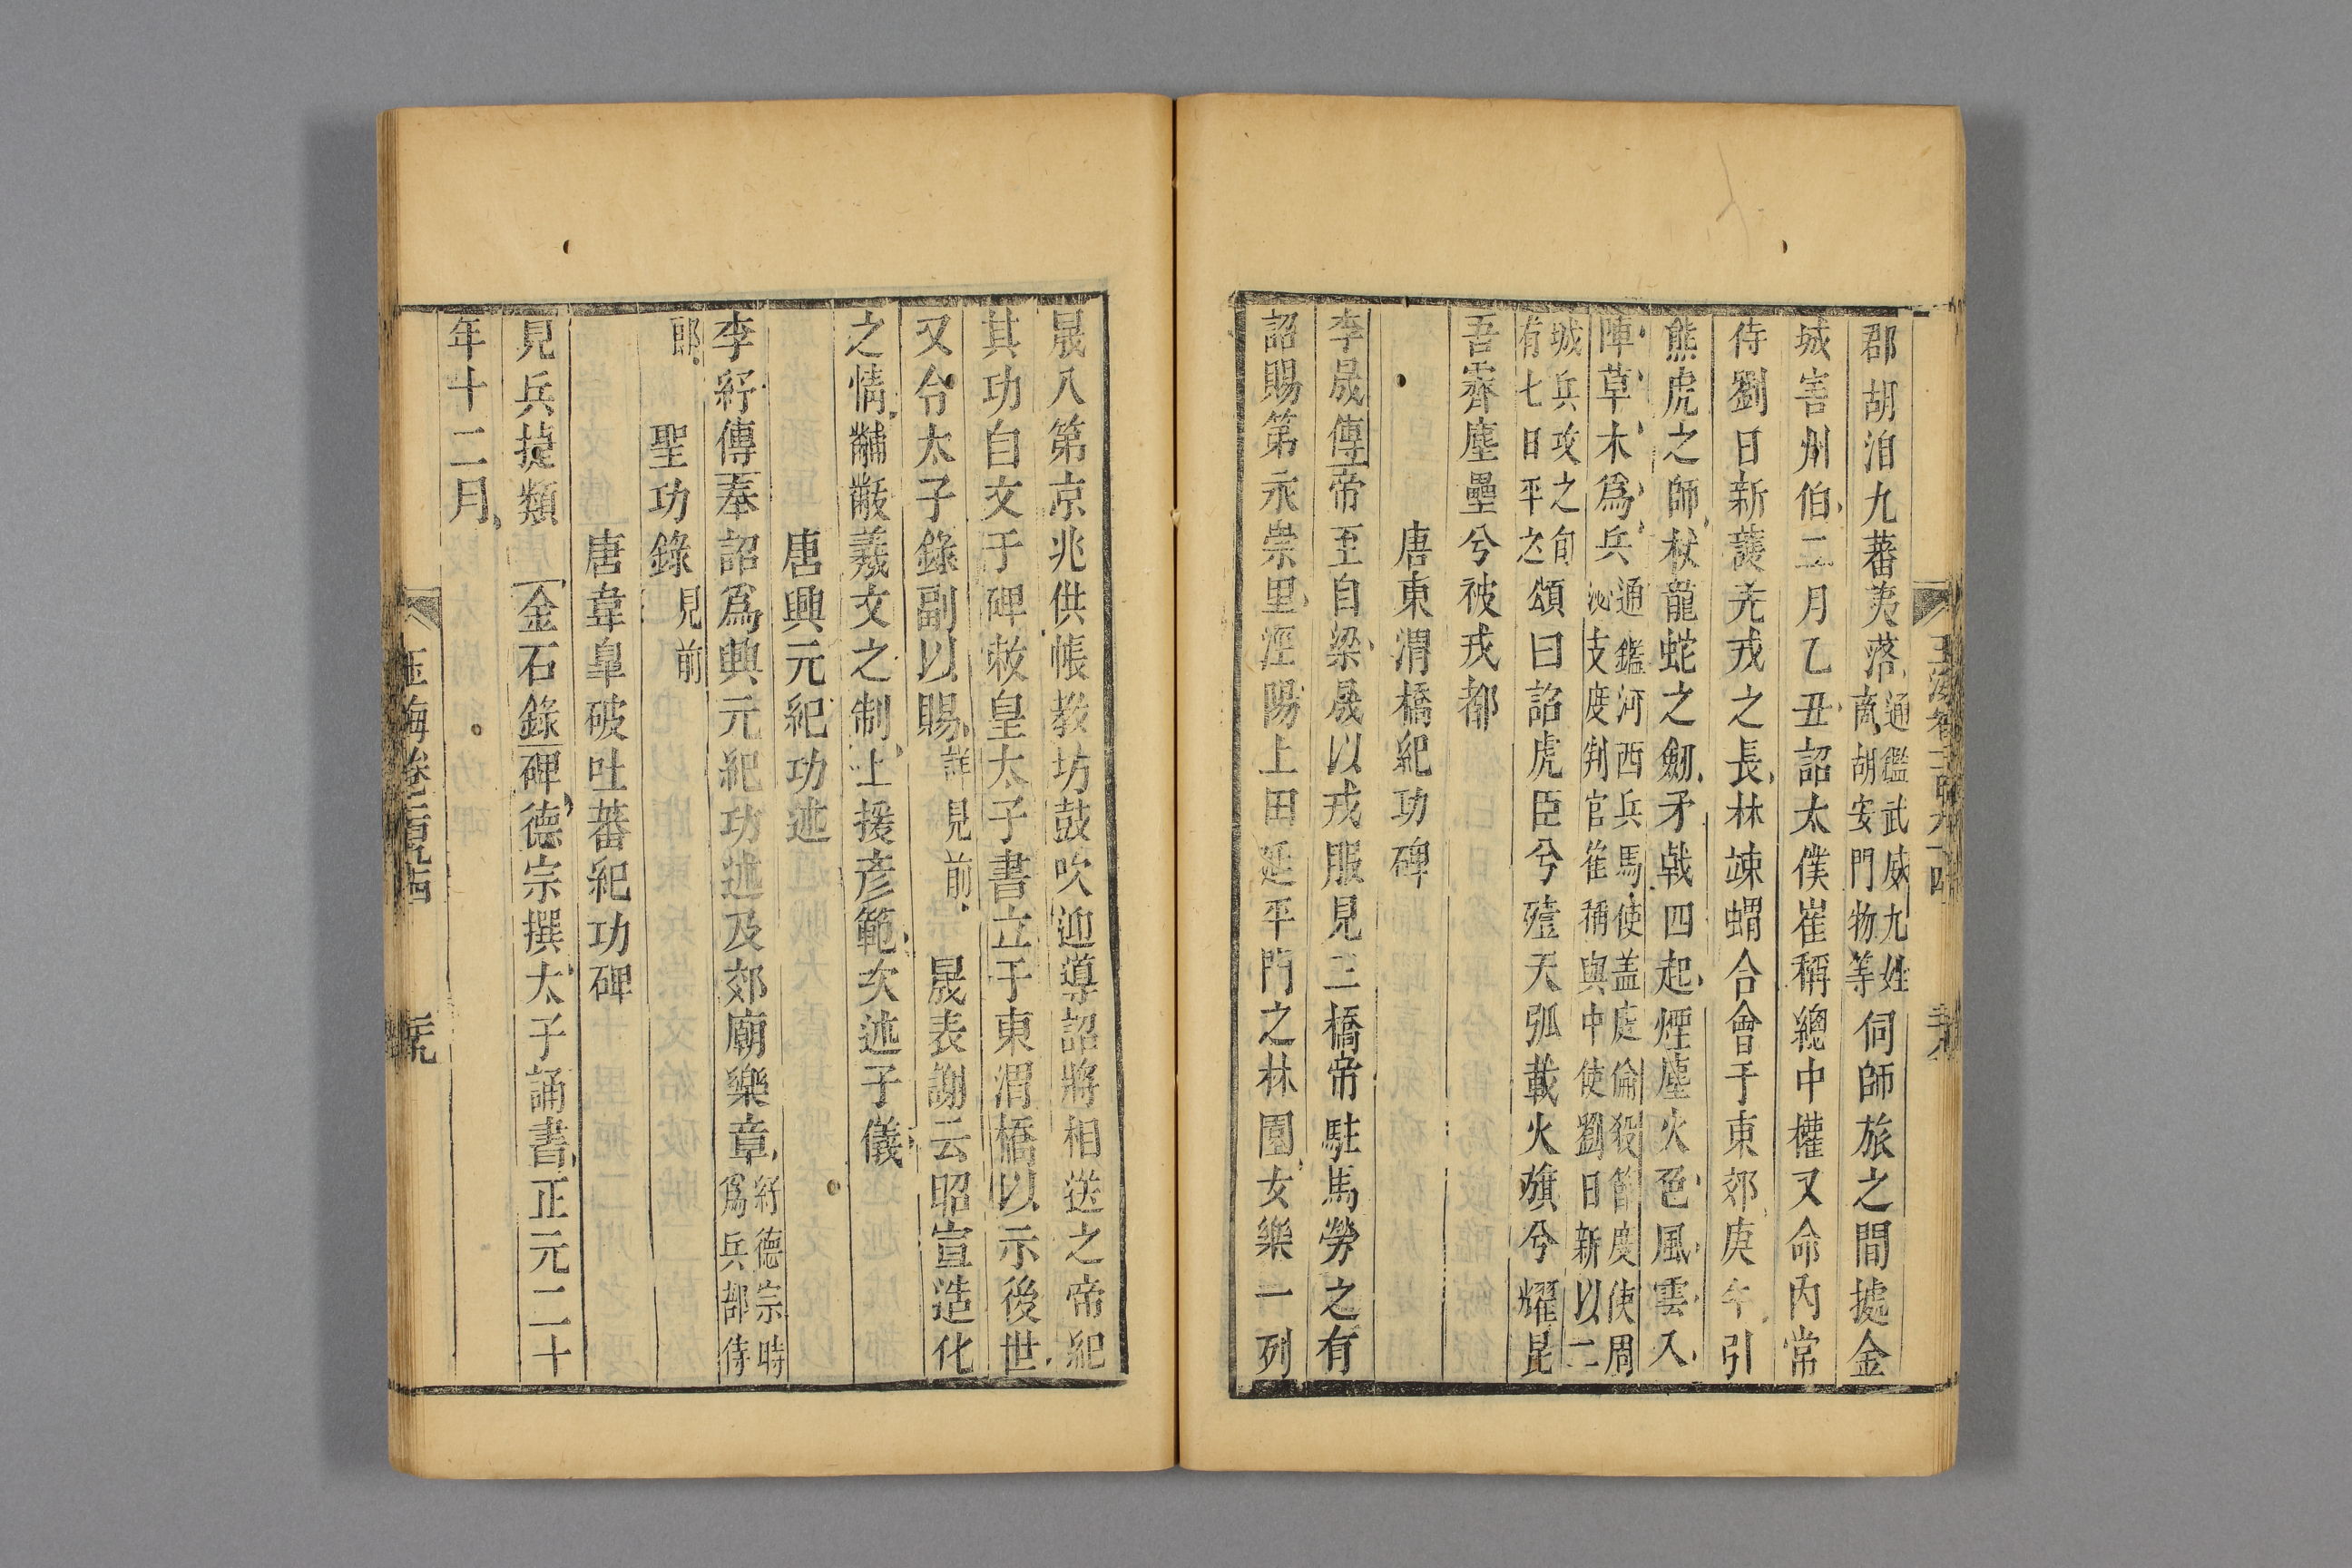 郡胡洎九蕃夷落通鑑武威九姓商胡安門物等伺師旅之間㨿金
城害州伯二月乙丑詔太僕崔稱總中權又命内常
侍劉日新護羌戎之長林竦蝟合會于東郊庚午引
熊虎之師杖龍蛇之劒矛戟四起煙塵火色風雲入
陣草木爲兵通鑑河西兵馬使盖庭倫殺節度使周泌支度判官崔稱與中使劉日新以二
城兵攻之旬有七日平之頌曰詔虎臣兮殪天弧載火旗兮耀昆
吾霽塵壘兮被戎都
唐東渭橋紀功碑
李晟傳帝至自梁晟以戎服見三橋帝駐馬勞之有
詔賜第永崇里涇陽上田延平門之林園女樂一列
晟入第京兆供帳教坊鼓吹迎導詔將相送之帝紀
其功自文于碑敕皇太子書立于東渭橋以示後世
又令太子錄副以賜詳見前晟表謝云昭宣造化
之情黼黻羲文之制上援彦範次述子儀
唐興元紀功述
李紓傳奉詔爲興元紀功述及郊廟樂章紓德宗時爲兵部侍
郎聖功錄見前
唐韋臯破吐蕃紀功碑
見兵捷類金石錄碑德宗撰太子誦書正元二十
年十二月
玉海卷一百九十四